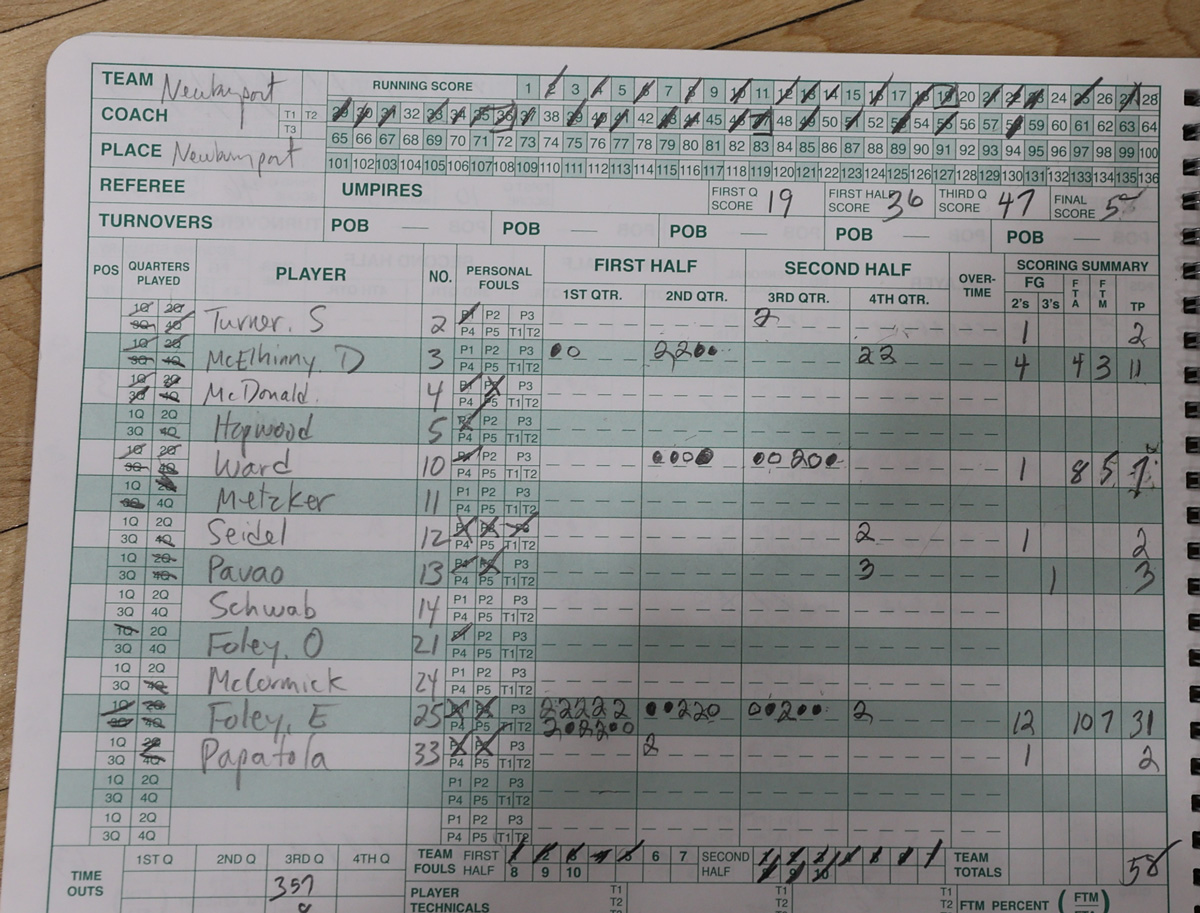 TEAM Newburyport RUNNING SCORE 1 2 3 4 5 6 7 8 9 10 11 12 13 14 15 16 17 18 19 20 21 22 23 24 25 26 27 28
COACH T1 T2 T3 29 30 31 32 33 34 35 36 37 38 39 40 41 42 43 44 45 46 47 48 49 50 51 52 53 54 55 56 57 58 59 60 61 62 63 64
65 66 67 68 69 70 71 72 73 74 75 76 77 78 79 80 81 82 83 84 85 86 87 88 89 90 91 92 93 94 95 96 97 98 99 100
PLACE Newburyport 101 102 103 104 105 106 107 108 109 110 111 112 113 114 115 116 117 118 119 120 121 122 123 124 125 126 127 128 129 130 131 132 133 134 135 136
REFEREE UMPIRES FIRST Q SCORE 19 FIRST HALF SCORE 36 THIRD Q SCORE 47 FINAL SCORE 58
TURNOVERS POB — POB — POB — POB — POB —
POS QUARTERS PLAYED PLAYER NO. PERSONAL FOULS FIRST HALF SECOND HALF OVER-TIME SCORING SUMMARY
1ST QTR. 2ND QTR. 3RD QTR. 4TH QTR. FG 2's 3's FTA FTM TP
1Q 2Q 3Q 4Q Turner, S 2 P1 P2 P3 P4 P5 T1 T2 2 1 2
1Q 2Q 3Q 4Q McElhinny, D 3 P1 P2 P3 P4 P5 T1 T2 ●○ 22●● 22 4 4 3 11
1Q 2Q 3Q 4Q McDonald. 4 P1 P2 P3 P4 P5 T1 T2
1Q 2Q 3Q 4Q Hopwood 5 P1 P2 P3 P4 P5 T1 T2
1Q 2Q 3Q 4Q Ward 10 P1 P2 P3 P4 P5 T1 T2 ●●○● ○○2○● 1 8 5 7
1Q 2Q 3Q 4Q Metzker 11 P1 P2 P3 P4 P5 T1 T2
1Q 2Q 3Q 4Q Seidel 12 P1 P2 P3 P4 P5 T1 T2 2 1 2
1Q 2Q 3Q 4Q Pavao 13 P1 P2 P3 P4 P5 T1 T2 3 1 3
1Q 2Q 3Q 4Q Schwab 14 P1 P2 P3 P4 P5 T1 T2
1Q 2Q 3Q 4Q Foley, O 21 P1 P2 P3 P4 P5 T1 T2
1Q 2Q 3Q 4Q McCormick 24 P1 P2 P3 P4 P5 T1 T2
1Q 2Q 3Q 4Q Foley, E 25 P1 P2 P3 P4 P5 T1 T2 22222 2●22●○ ●●22○ ○●2●● 2 12 10 7 31
1Q 2Q 3Q 4Q Papatola 33 P1 P2 P3 P4 P5 T1 T2 2 1 2
1Q 2Q 3Q 4Q P1 P2 P3 P4 P5 T1 T2
1Q 2Q 3Q 4Q P1 P2 P3 P4 P5 T1 T2
TIME OUTS 1ST Q 2ND Q 3RD Q 4TH Q TEAM FOULS FIRST HALF 1 2 3 4 5 6 7 8 9 10 SECOND HALF 1 2 3 4 5 6 7 8 9 10 TEAM TOTALS 58
357
PLAYER TECHNICALS T1 T2 T1 T2 T1 T2 FTM PERCENT ( FTM